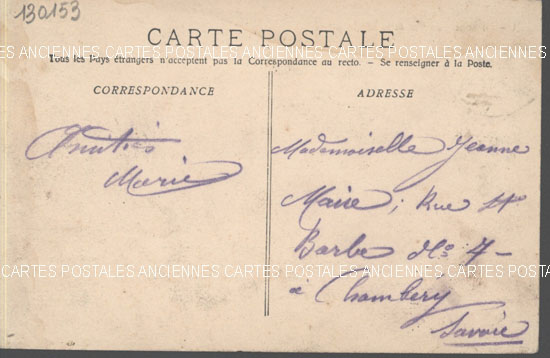 130153
CARTE POSTALE
CARTES POSTALES ANCIENNES CARTES POSTALES ANCIENNES CARTES POSTALES
Tous les Pays étrangers n'acceptent pas la Correspondance au recto. - Se renseigner à la Poste.
CORRESPONDANCE
ADRESSE
Amitiés
Marie
Mademoiselle Jeanne
Maire, Rue St
Barbe No 7 -
à Chambery
Savoie
CARTES POSTALES ANCIENNES CARTES POSTALES ANCIENNES CARTES POSTALES